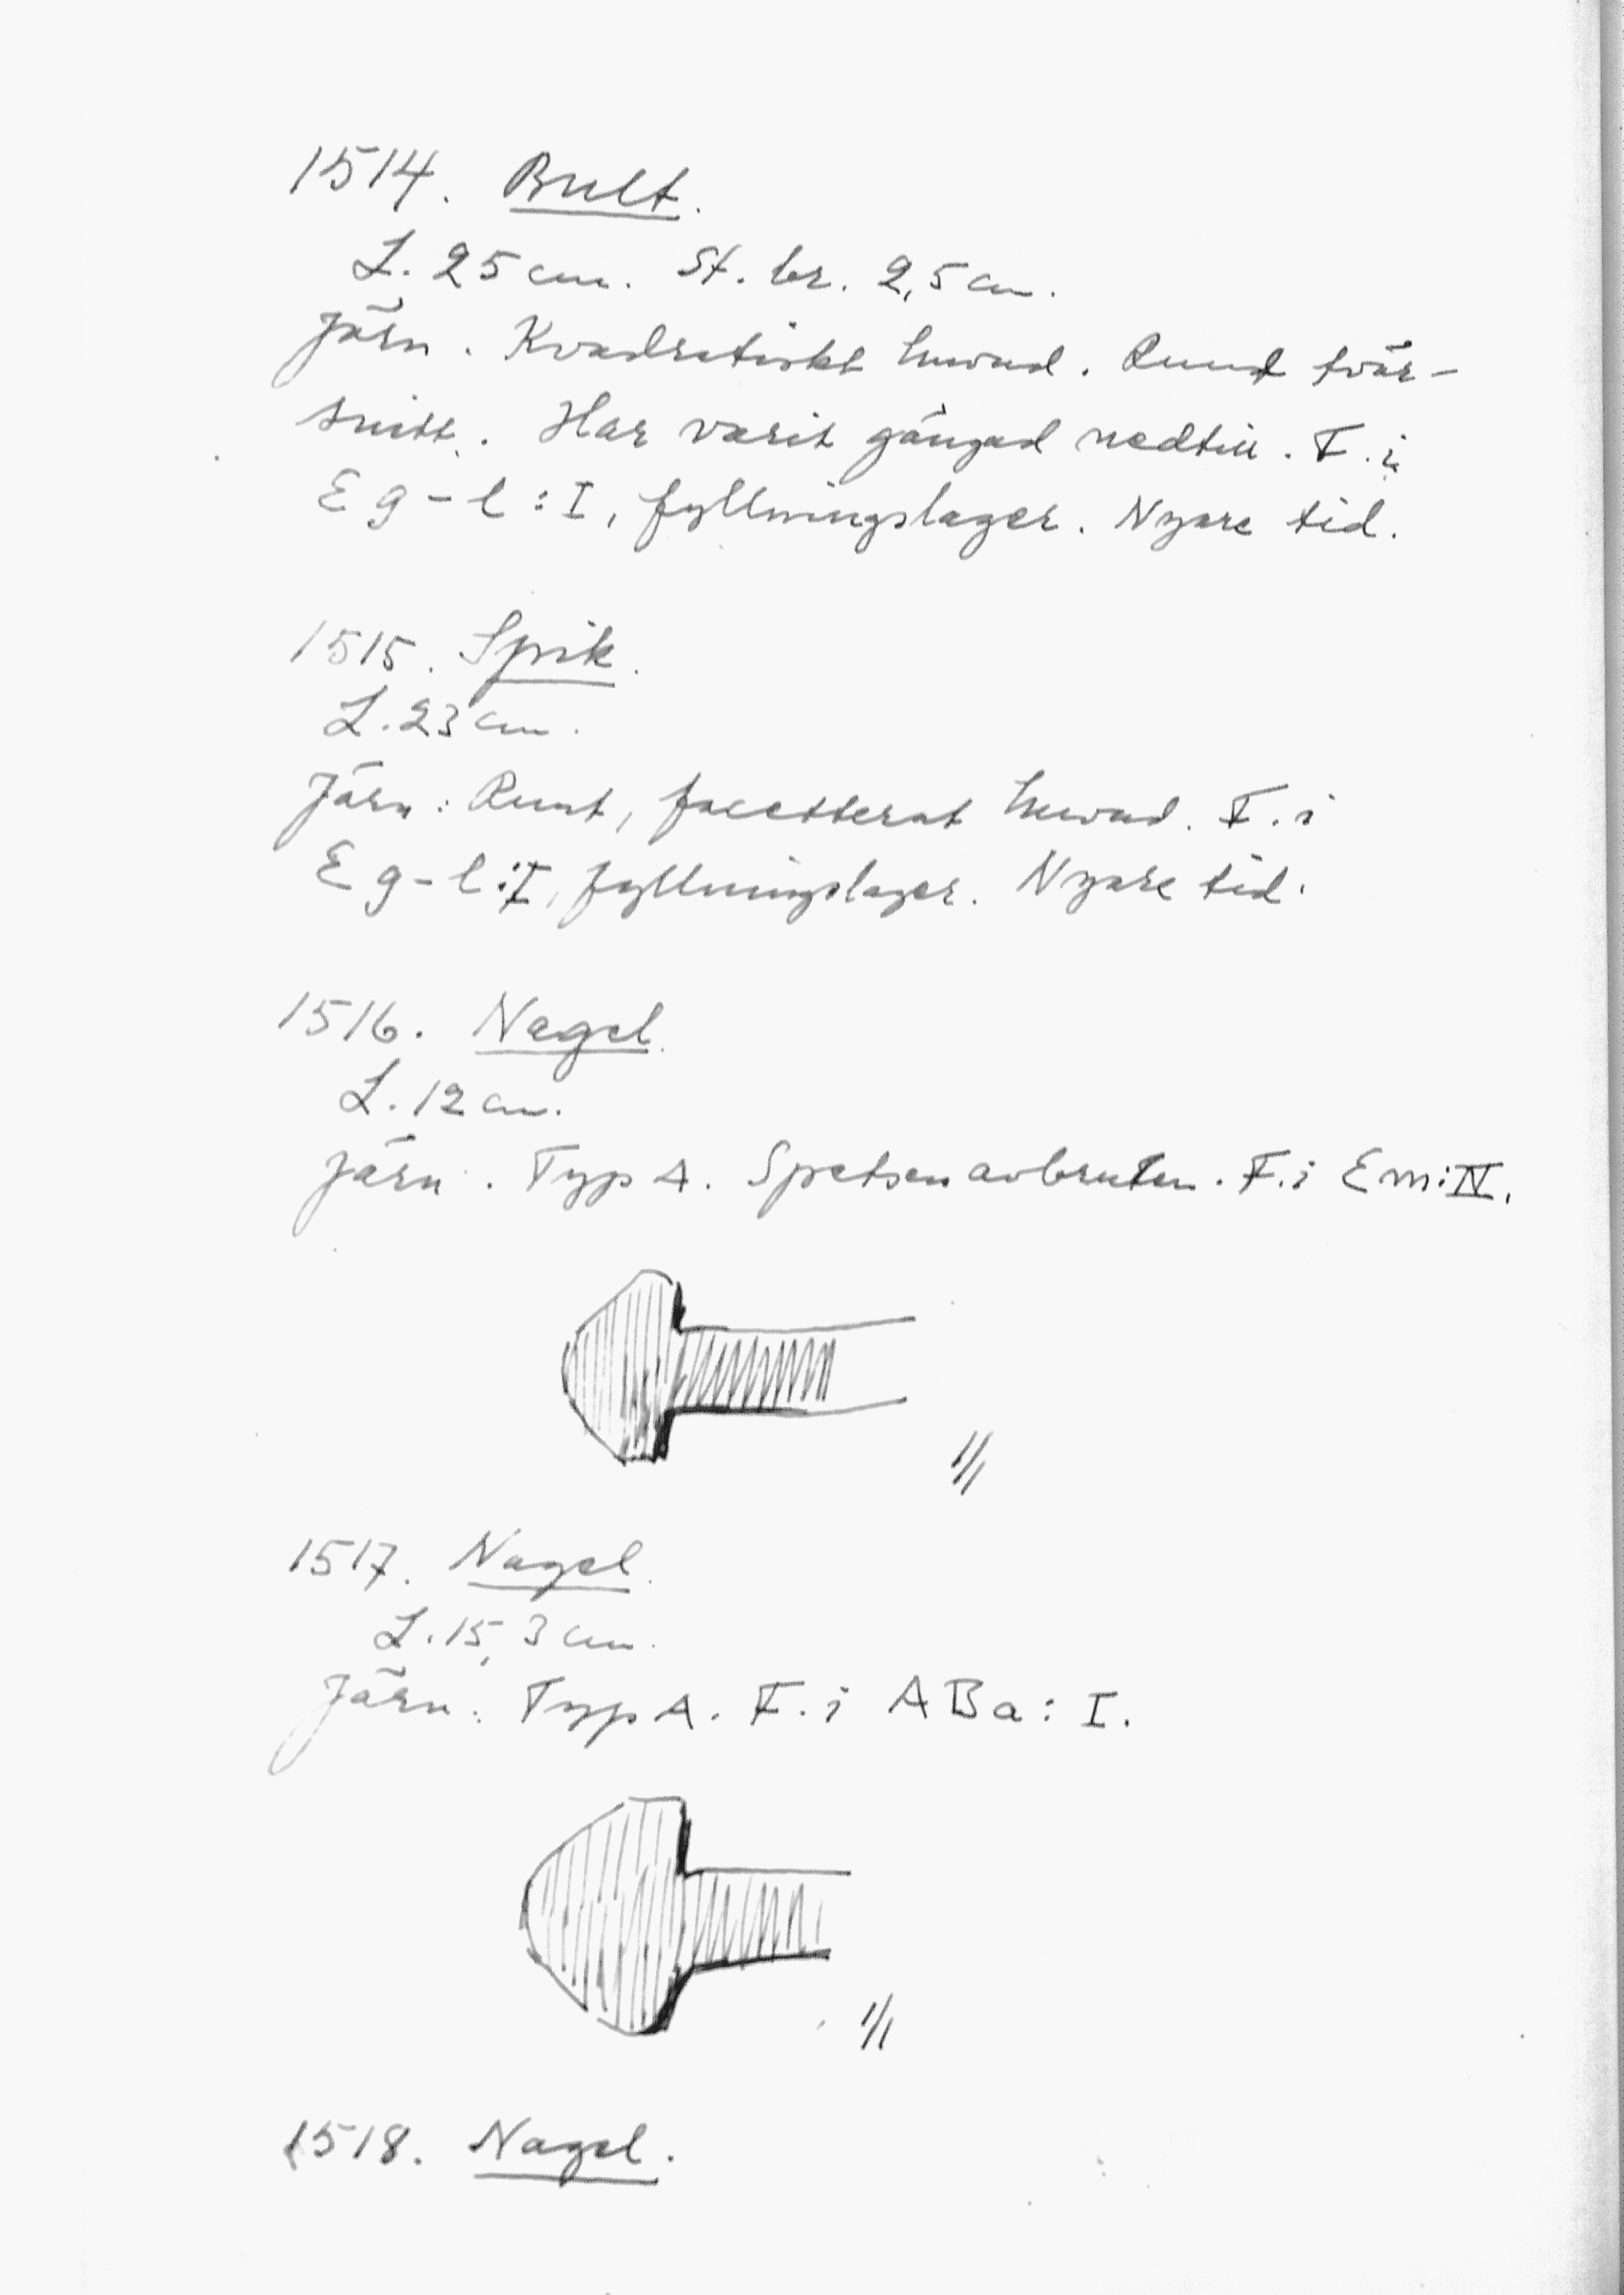 1514. Bult.
L. 25 cm. St. br. 2,5 cm.
Järn. Kvadratiskt huvud. Rund tvär-
snitt. Har varit gängad nedtill. F. i
E g-l:I, fyllningslager. Nyare tid.
1515. Spik.
L. 23 cm.
Järn. Runt, facetterat huvud. F. i
E g-l:I, fyllningslager. Nyare tid.
1516. Nagel.
L. 12 cm.
Järn. Typ A. Spetsen avbruten. F. i E m:IV.
1/1
1517. Nagel.
L. 15,3 cm.
Järn. Typ A. F. i ABa: I.
1/1
1518. Nagel.